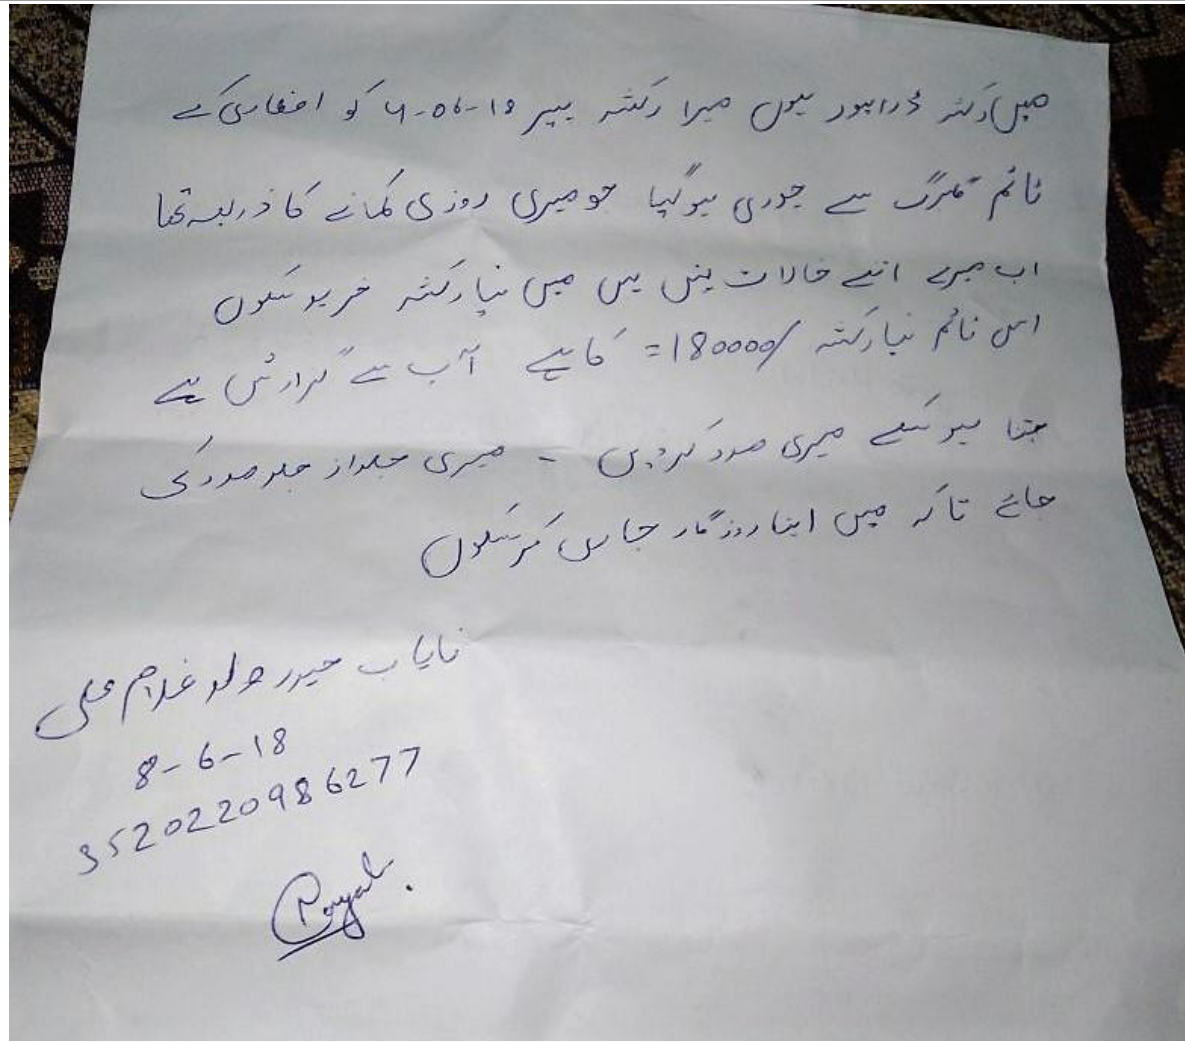 میں رکشہ ڈرائیور ہوں میرا رکشہ پیر 18-06-4 کو افطاری کے
ٹائم گلبرگ سے چوری ہو گیا جو میری روزی کمانے کا ذریعہ تھا
اب میرے اتنے حالات نہیں ہیں میں نیا رکشہ خرید سکوں
اس ٹائم نیا رکشہ 180000/= کا ہے آپ سے گزارش ہے
جتنا ہو سکے میری مدد کر دیں - میری جلد از جلد مدد کی
جائے تاکہ میں اپنا روزگار جاری کر سکوں
نایاب حیدر ولد غلام علی
8-6-18
3520220986277